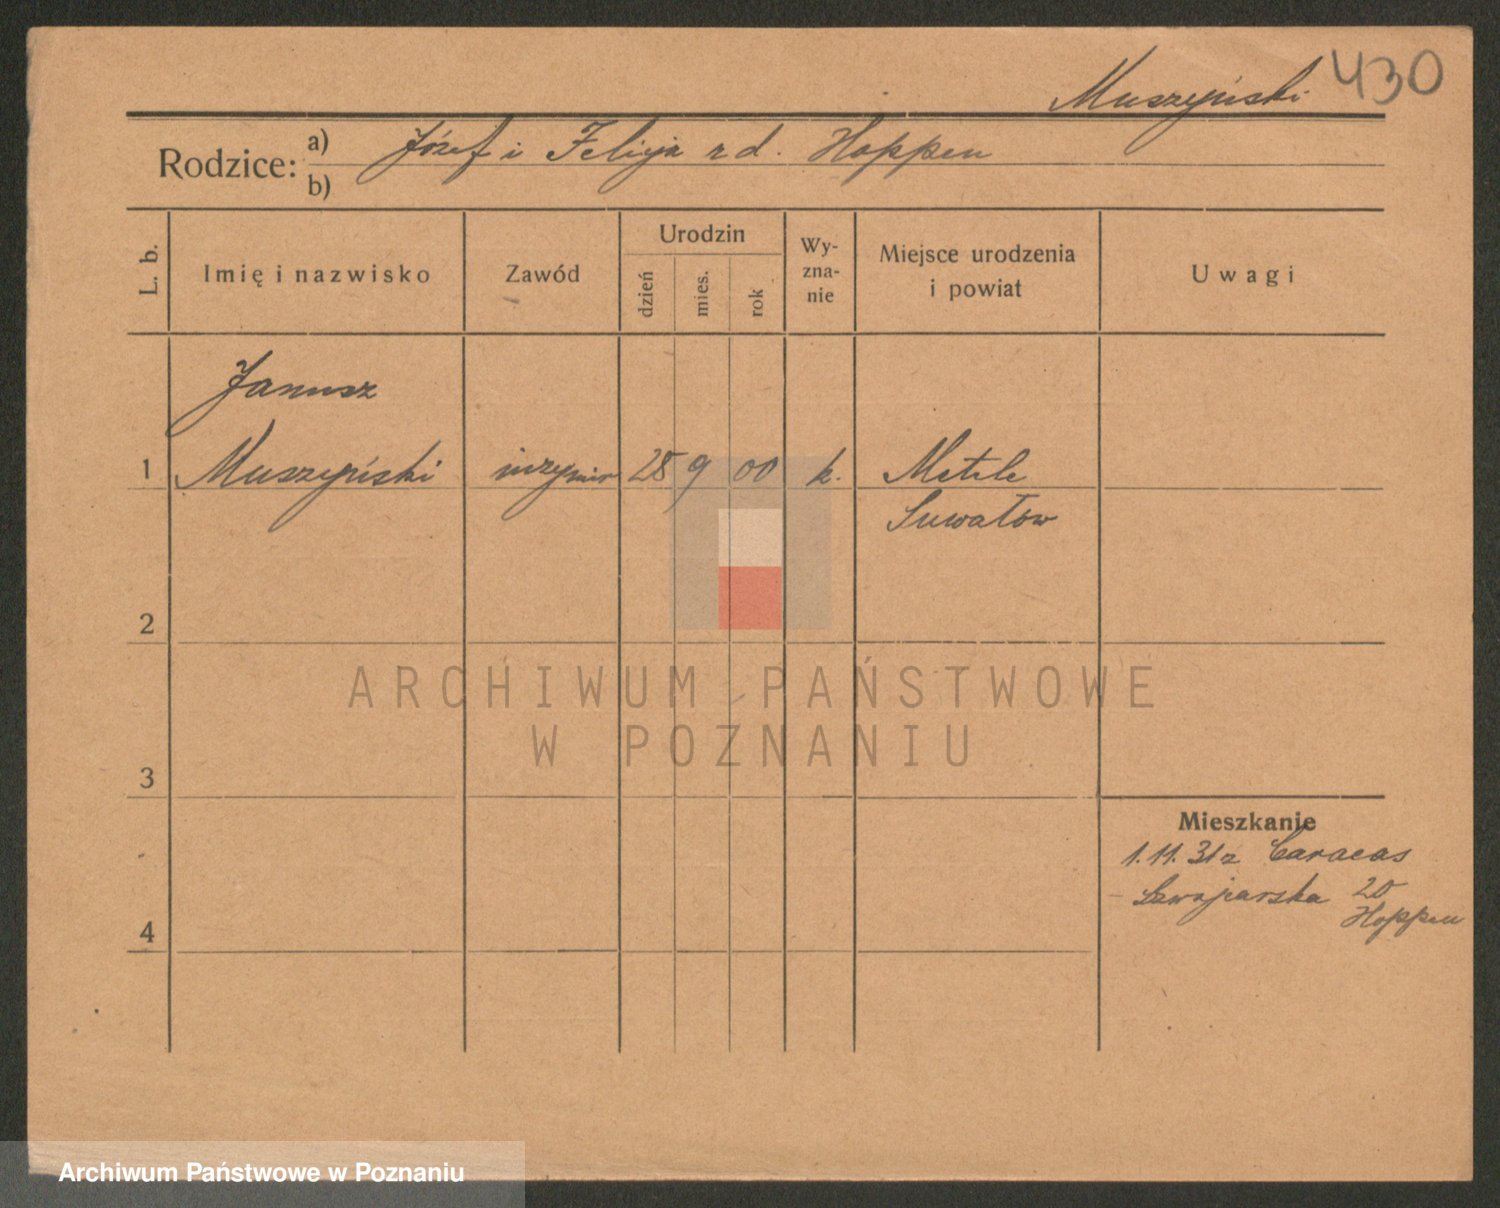 Muszyński 430
Rodzice: a) Józef i Felicja r d. Hoppen
b)
L. b. Imię i nazwisko Zawód Urodzin dzień mies. rok Wy-zna-nie Miejsce urodzenia i powiat Uwagi
Janusz
1 Muszyński inżynier 28 9 00 k. Metele
Suwałów
2
ARCHIWUM PAŃSTWOWE
W POZNANIU
3
Mieszkanie
1.11.31 z Caracas
- Szwajcarska 20
Hoppen
4
Archiwum Państwowe w Poznaniu